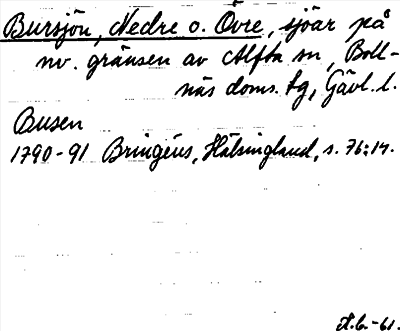 Bursjön, Nedre o. Övre, sjöar på
nv. gränsen av Alfta sn, Boll-
näs doms. tg, Gävl. l.
Busen
1790-91 Bringéus, Hälsingland, s. 76; 14.
-61.